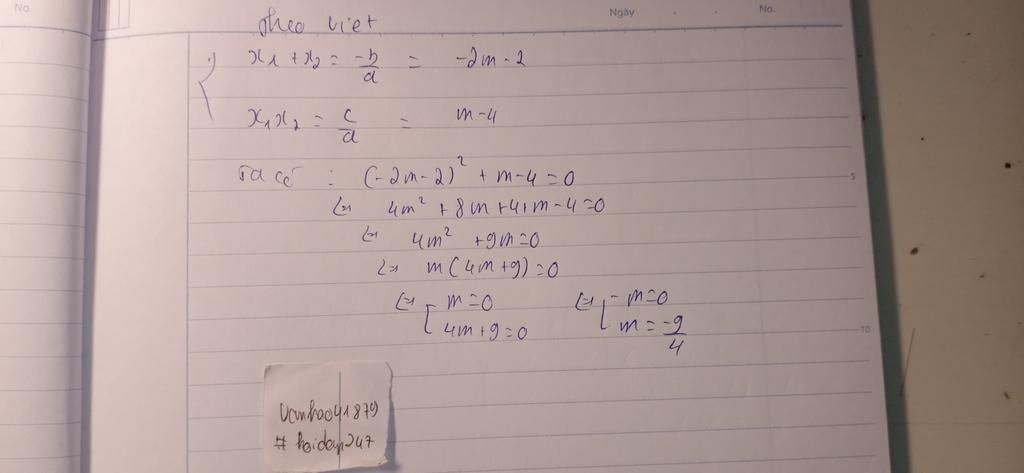 No.
Ngày . . No.
Theo Viet
{ x₁ + x₂ = -b/a = -2m - 2
x₁x₂ = c/a = m-4
Ta có : (-2m-2)² + m-4 =0
⇔ 4m² + 8m +4+m-4=0
⇔ 4m² +9m=0
⇔ m(4m+9)=0
⇔ [ m=0 ⇔ [ m=0
4m+9=0 m = -9/4
5
10
Vanhao41879
# hoidap247